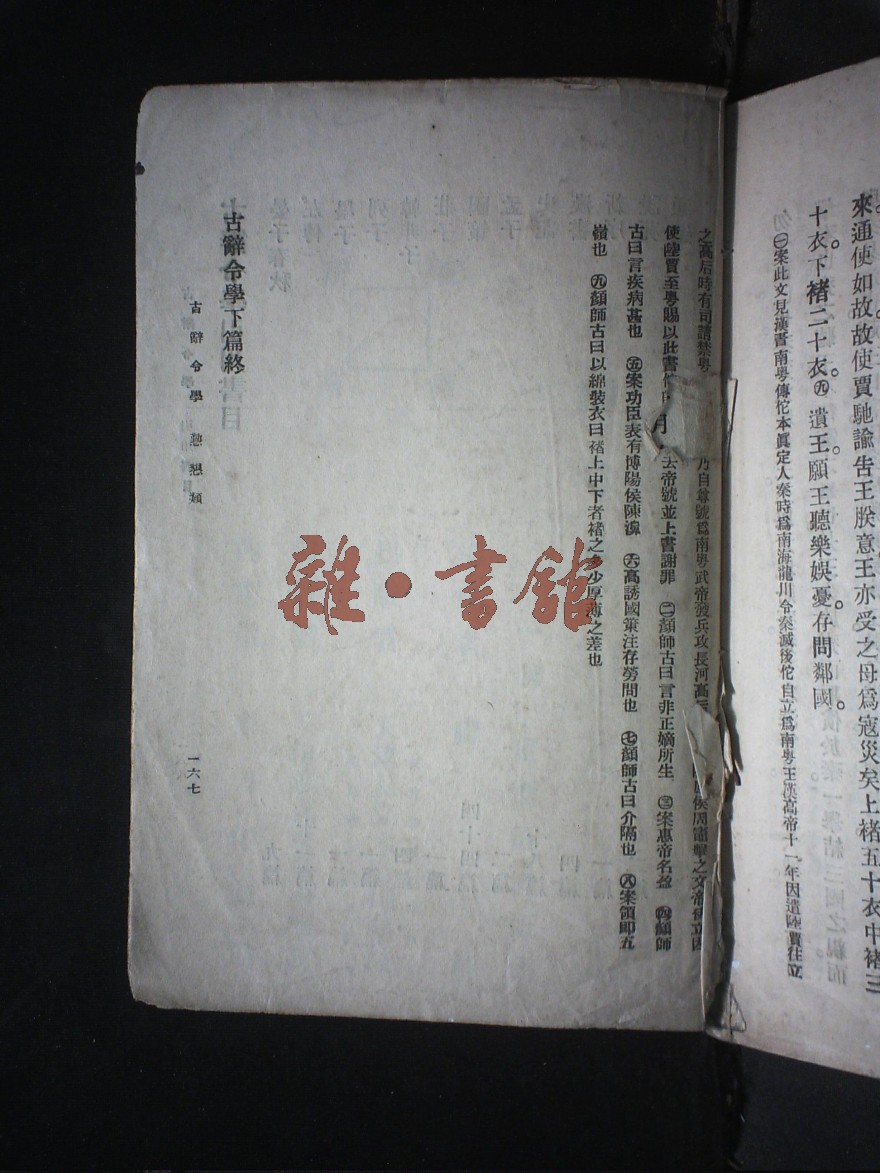 來通使如故故使賈馳諭告王朕意王亦受之母爲寇災矣上褚五十衣中褚三
十衣下褚二十衣㊈遺王願王聽樂娛憂存問鄰國
㊀案此文見漢書南粤傳佗本眞定人秦時爲南海龍川令秦滅後佗自立爲南粤王漢高帝十一年因遣陸賈往立
之高后時有司請禁粤 乃自尊號爲南粤武帝發兵攻長河高后 侯周竈擊之文帝 立因
使陸賈至粤賜以此書 去帝號並上書謝罪 ㊁顏師古曰言非正嫡所生 ㊂案惠帝名盈 ㊃顏師
古曰言疾病甚也 ㊄案功臣表有博陽侯陳濞 ㊅高誘國策注存勞問也 ㊆顏師古曰介隔也 ㊇案領即五
嶺也 ㊈顏師古曰以綿裝衣曰褚上中下者褚之多少厚薄之差也
古辭令學下篇終
古辭令學 懃懇類
一六七
雜·書館